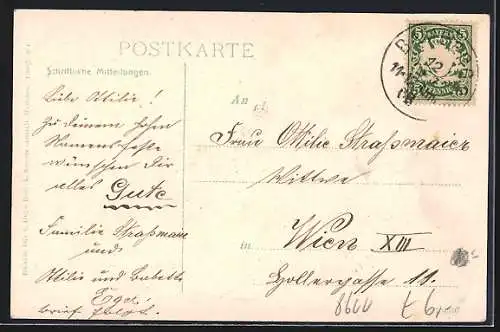 POSTKARTE
Schriftliche Mitteilungen.
Liebe Ottilie!
Zu Deinem hohen
Namensfeste
wünschen Dir
alles Gute
Familie Straßmaier
und
Ottilie und Babette
Brief folgt.
An
Frau Ottilie Strassmaier
Wittwe
in Wien XIII
Hollergasse 11.
8600
BAYERN
5 5
PFENNIG
12